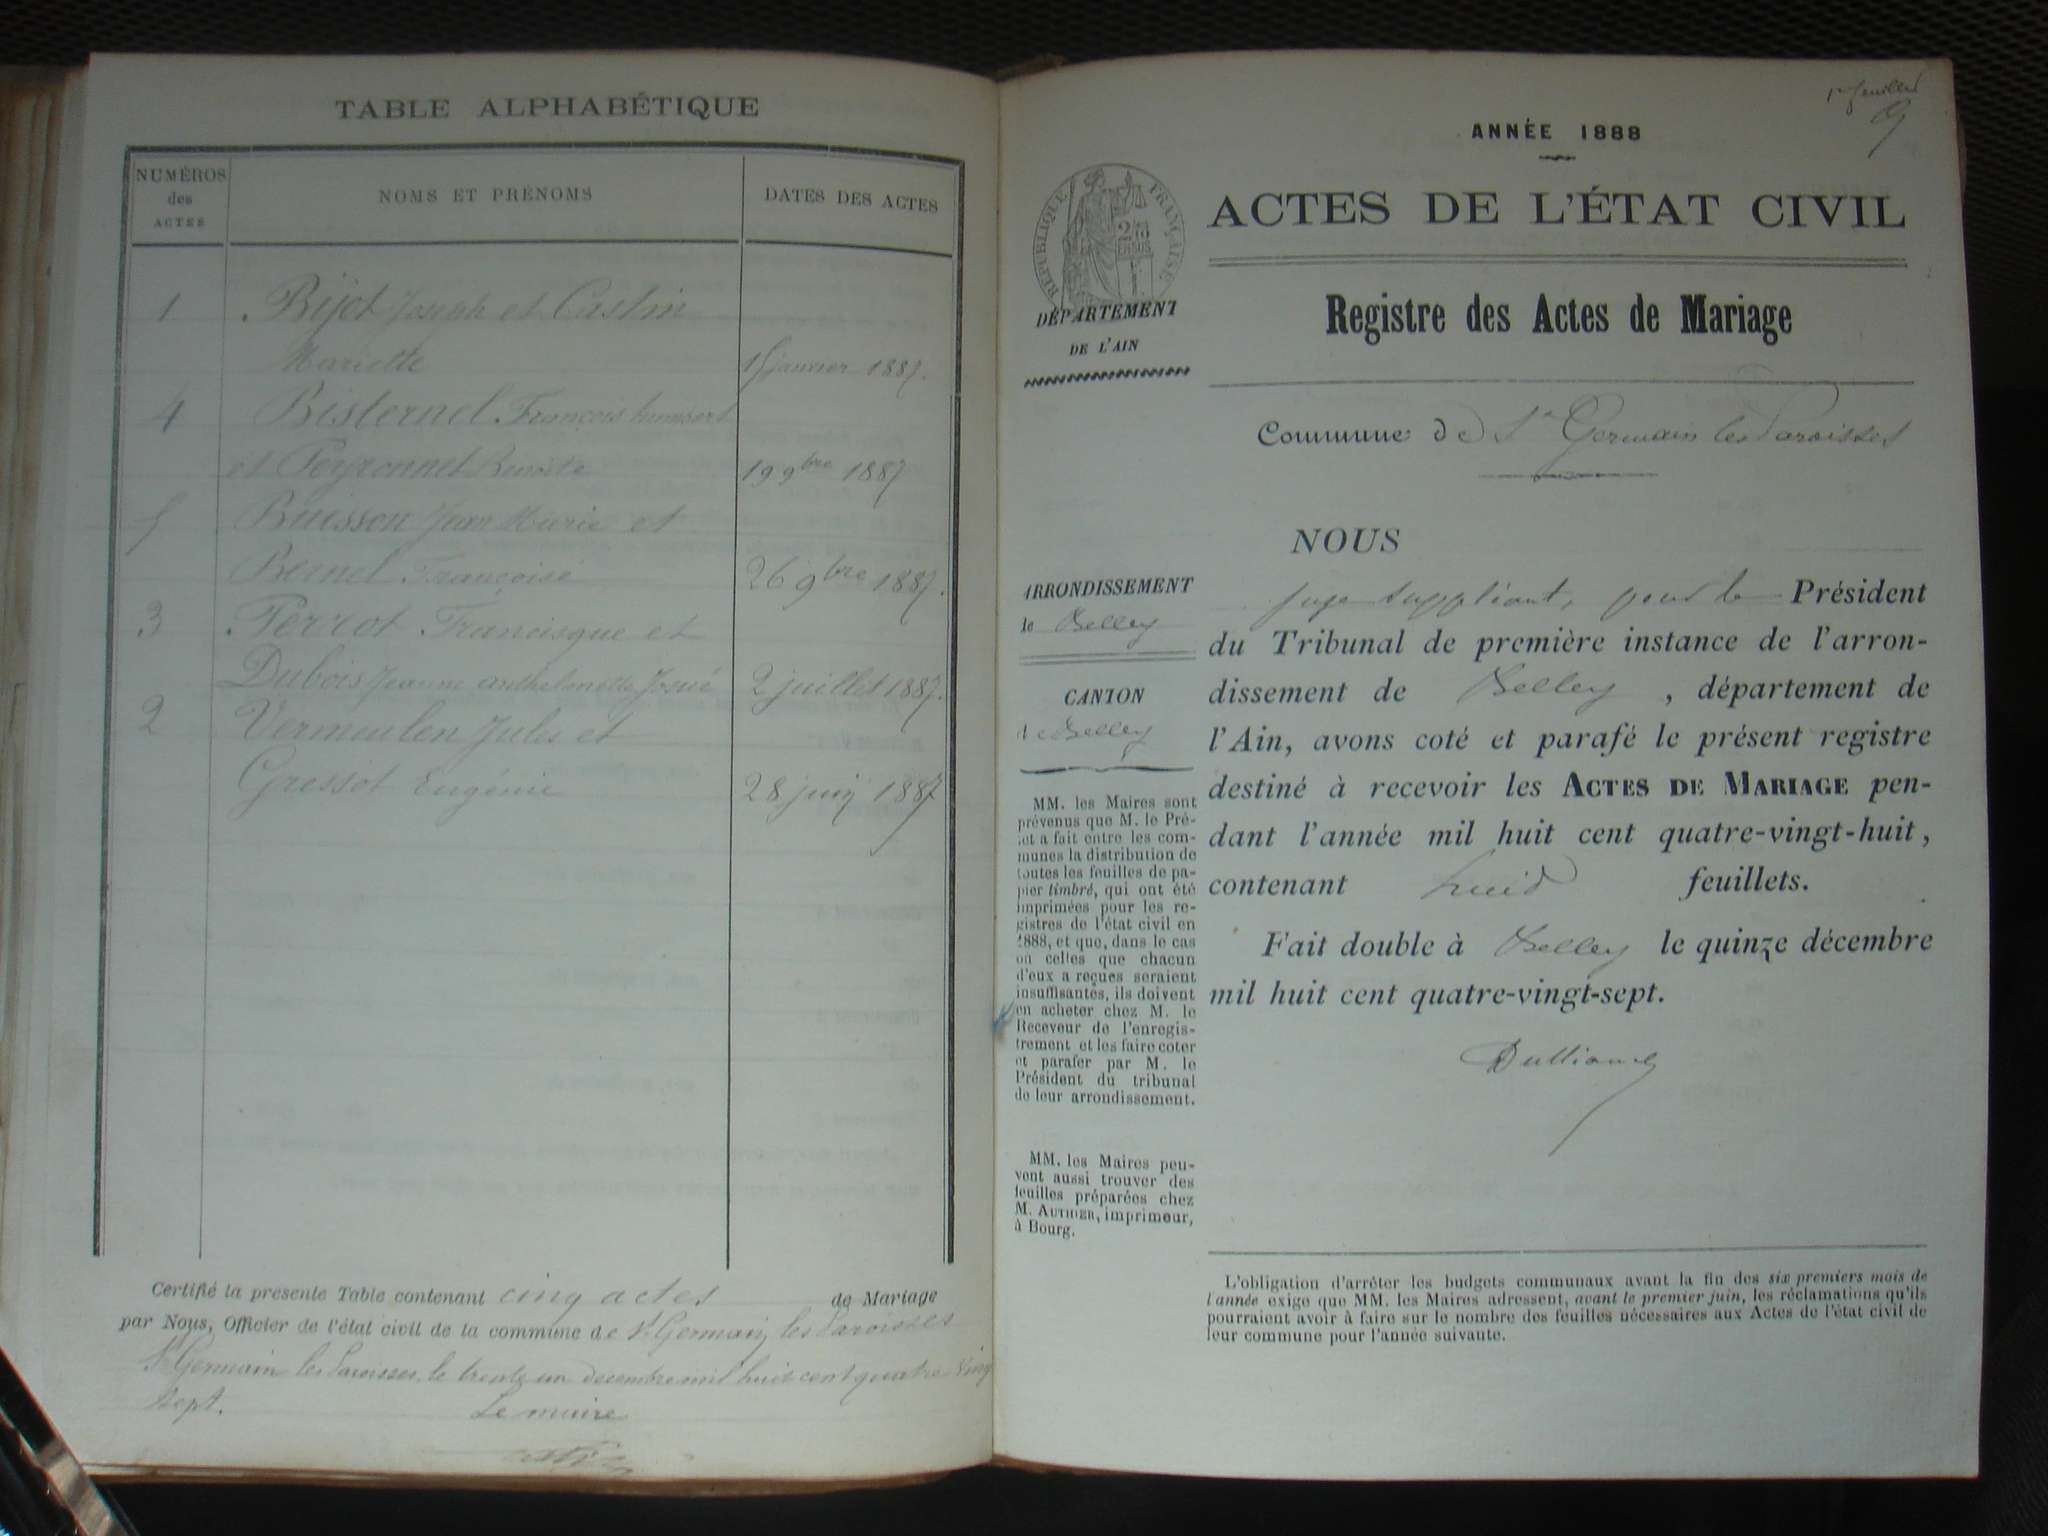 TABLE ALPHABÉTIQUE
NUMÉROS
des
ACTES
NOMS ET PRÉNOMS
DATES DES ACTES
1 Bijot Joseph et Castin
Mariette 15 janvier 1887.
4 Bisternel François humbert
et Peyronnet Benoite 19 9bre 1887
5 Buisson Jean Marie et
Bernel Françoise 26 9bre 1887.
3 Perrot Francisque et
Dubois Jeanne anthelmette Josué 2 juillet 1887.
2 Vermeulen Jules et
Gressot Eugénie 28 juin 1887
Certifié la présente Table contenant cinq actes de Mariage
par Nous, Officier de l'état civil de la commune de St Germain les Paroisses
St Germain les Paroisses, le trente un decembre mil huit cent quatre-ving
sept.
Le maire
1er feuillet
ANNÉE 1888
ACTES DE L'ÉTAT CIVIL
RÉPUBLIQUE FRANÇAISE
DÉPARTEMENT
DE L'AIN
Registre des Actes de Mariage
Commune de St Germain les Paroisses
NOUS
ARRONDISSEMENT
de Belley
CANTON
de Belley
juge suppléant, pour le Président
du Tribunal de première instance de l'arron-
dissement de Belley, département de
l'Ain, avons coté et parafé le présent registre
destiné à recevoir les ACTES DE MARIAGE pen-
dant l'année mil huit cent quatre-vingt-huit,
contenant huit feuillets.
Fait double à Belley le quinze décembre
mil huit cent quatre-vingt-sept.
MM. les Maires sont
prévenus que M. le Pré-
fet a fait entre les com-
munes la distribution de
toutes les feuilles de pa-
pier timbré, qui ont été
imprimées pour les re-
gistres de l'état civil en
1888, et que, dans le cas
où celles que chacun
d'eux a reçues seraient
insuffisantes, ils doivent
en acheter chez M. le
Receveur de l'enregis-
trement et les faire coter
et parafer par M. le
Président du tribunal
de leur arrondissement.
MM. les Maires peu-
vent aussi trouver des
feuilles préparées chez
M. AUTHIER, imprimeur,
à Bourg.
L'obligation d'arrêter les budgets communaux avant la fin des six premiers mois de
l'année exige que MM. les Maires adressent, avant le premier juin, les réclamations qu'ils
pourraient avoir à faire sur le nombre des feuilles nécessaires aux Actes de l'état civil de
leur commune pour l'année suivante.